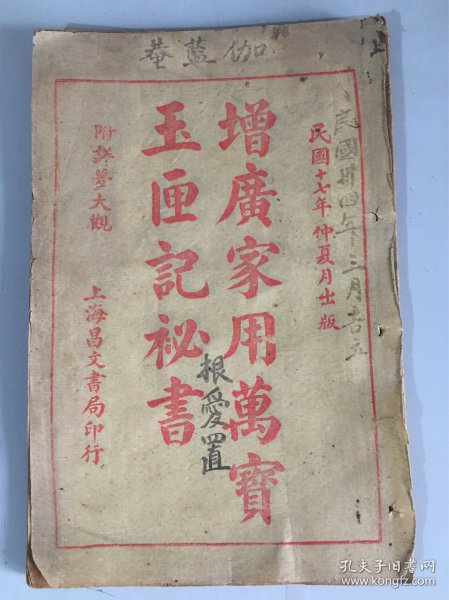 伽藍菴
上
民國卅四年三月吉立
民國十七年仲夏月出版
增廣家用萬寶
玉匣記祕書
根愛置
附詳夢大觀
上海昌文書局印行
孔夫子旧书网
www.kongfz.com